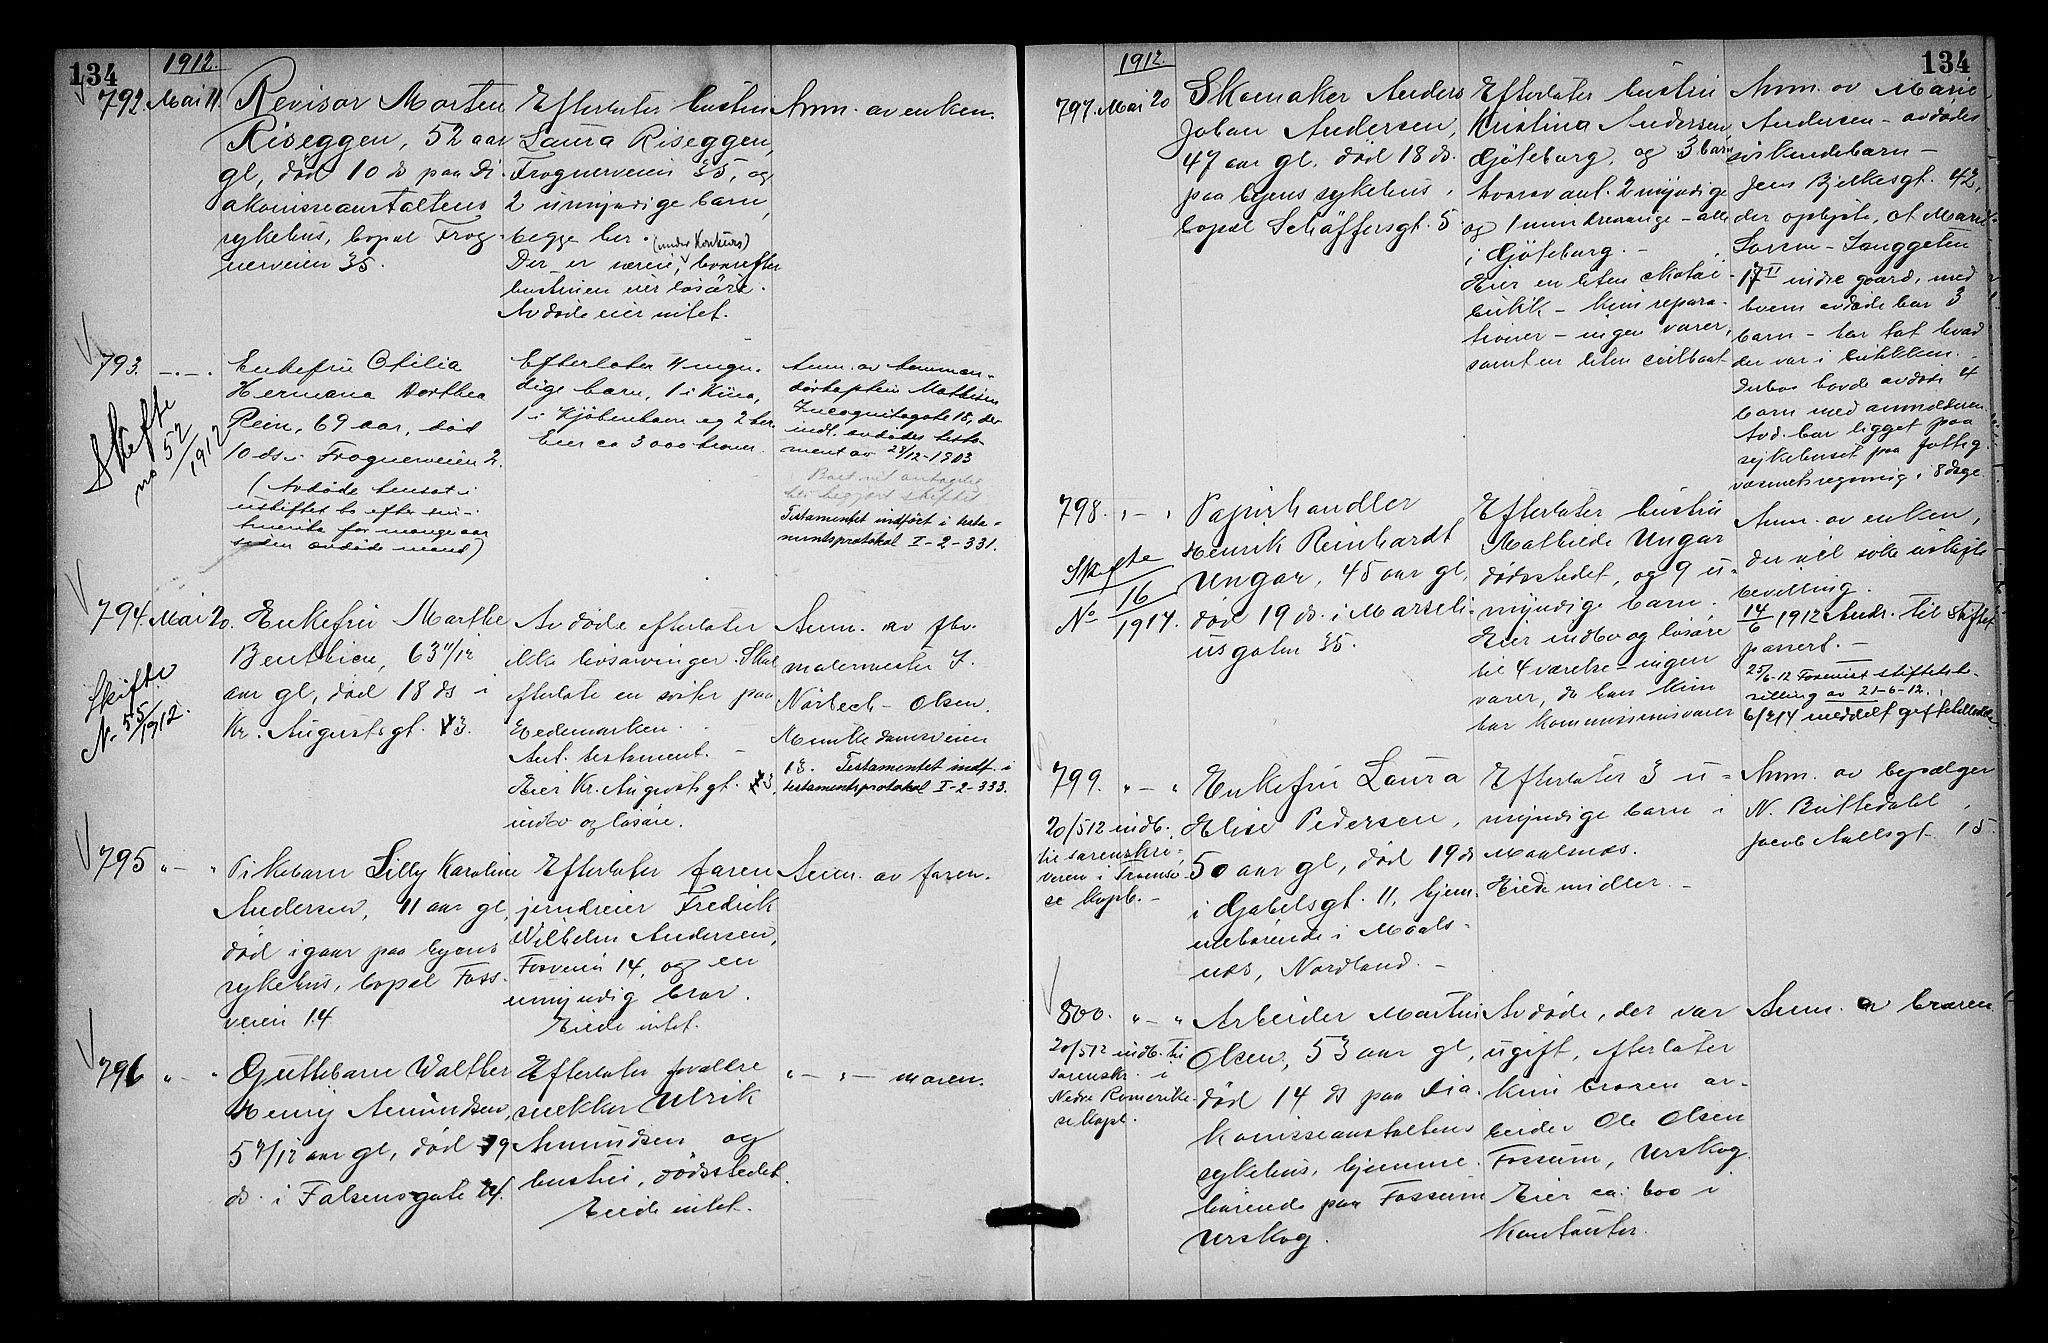 134
1912.
792. Mai 11.
Revisor Morten
Riseggen, 52 aar
gl, död 10 ds paa Di-
akonisseanstaltens
sykehus, bopæl Frog-
nerveien 35.
Efterlater hustru
Laura Riseggen,
Frognerveien 35, og
2 umyndige barn,
begge her. (under Konkurs)
Der er særeie, hvorefter
hustruen eier lösöre.
Avdöde eier intet.
Anm. av enken.
793. -.-.
Skifte
no 52/1912
Enkefru Otilia
Hermana Dorthea
Rein, 69 aar, död
10 ds. i Frognerveien 2.
(Avdöde hensat i
uskiftet bo efter
for mange aar
siden avdöde mand)
Efterlater 4 myn-
dige barn, 1 i Kina,
1 i Kjöbenhavn og 2 her.
Eier ca 3000 kroner.
Anm. av komman-
dörkaptein Mathisen
Incognitogate 18, der
indl. avdödes testa-
ment av 29/12-1903
Boet vil antagelig
bli begjært skiftet
Testamentet indfört i testa-
mentsprotokol I-2-331.
794. Mai 20.
Skifte
No 55/1912.
Enkefru Marthe
Benthien, 63 11/12
aar gl, död 18 ds i
Kr. Augustsgt. 13.
Avdöde efterlater
ikke livsarvinger. Skal
efterlate en söster paa
Hedemarken.
Ant. testament. -
Eier Kr. Augustsgt. 13,
indbo og lösöre.
Anm. av fhv.
malermester J.
Nörbech-Olsen,
Munkedamsveien
13. Testamentet indf. i
testamentsprotokol I-2-333.
795 " - "
Pikebarn Lilly Karoline
Andersen, 11 aar gl,
död igaar paa byens
sykehus, bopæl Foss-
veien 14
Efterlater faren
jerndreier Fredrik
Wilhelm Andersen,
Fosveien 14, og en
umyndig bror.
Eiede intet.
Anm. av faren.
796 " - "
Guttebarn Walther
Henry Amundsen,
5 9/12 aar gl, död 19
ds. i Falsensgate 14.
Efterlater forældre
snekker Ulrik
Amundsen og
hustru, dödsstedet.
Eiede intet.
" - " - moren.
134
1912.
797. Mai 20
Skomaker Anders
Johan Andersen,
47 aar gl. död 18 ds.
paa byens sykehus,
bopæl Schäffersgt. 5
Efterlater hustru
Kristina Andersen,
Gjöteborg, og 3 barn
hvorav ant. 2 myndige
og 1 mindreaarige - alle
i Gjöteborg. -
Eier en liten skotöi-
butik - kun repara-
tioner - ingen varer,
samt en liten seilbaat
Anm. av Marie
Andersen - avdödes
söskendebarn -
Jens Bjelkesgt. 42,
der oplyste, at Marie
Larsen - Langgaten
17 II indre gaard, med
hvem avdöde har 3
barn - har tat hvad
der var i butikken. -
Derhos havde avdöde 4
barn med anmelderen
Avd. har ligget paa
sykehuset paa fattig-
væsenets regning i 8 dage.
798. " - "
Skifte
No 16/1914.
Papirhandler
Henrik Reinhardt
Ungar, 45 aar gl,
död 19 ds. i Marseli-
usgaten 35.
Efterlater hustru
Mathilde Ungar
dödsstedet, og 9 u-
myndige barn.
Eier indbo og lösöre
til 4 værelser - ingen
varer, da han kun
har kommissionsvarer
Anm. av enken,
der vil söke uskifte
bevilling.
14/6 1912 Andr. til Stiftet
passert. -
25/6-12 Forevist stiftets be-
villing av 21-6-12.
6/2 14 meddelt giftetilladelse
799. " - "
20/5 12 indb.
til sorenskri-
veren i Tromsö
se kopb. -
Enkefru Laura
Elise Pedersen,
50 aar gl, död 19 ds
i Gabelsgt. 11, hjem-
mehörende i Maals-
næs, Nordland. -
Efterlater 3 u-
myndige barn i
Maalsnæs.
Eiede midler. -
Anm. av bopælger
N. Buttedahl,
Jacob Aallsgt. 15.
800. " - "
20/5 12 indb. til
sorenskr. i
Nedre Romerike.
se kopb.
Arbeider Martin
Olsen, 53 aar gl,
död 14 ds paa Dia-
konisseanstaltens
sykehus, hjemme-
hörende paa Fossum
Urskog.
Avdöde, der var
ugift, efterlater
kun broren ar-
beider Ole Olsen
Fossum, Urskog.
Eier ca: 600 i
kontanter.
Anm. av broren